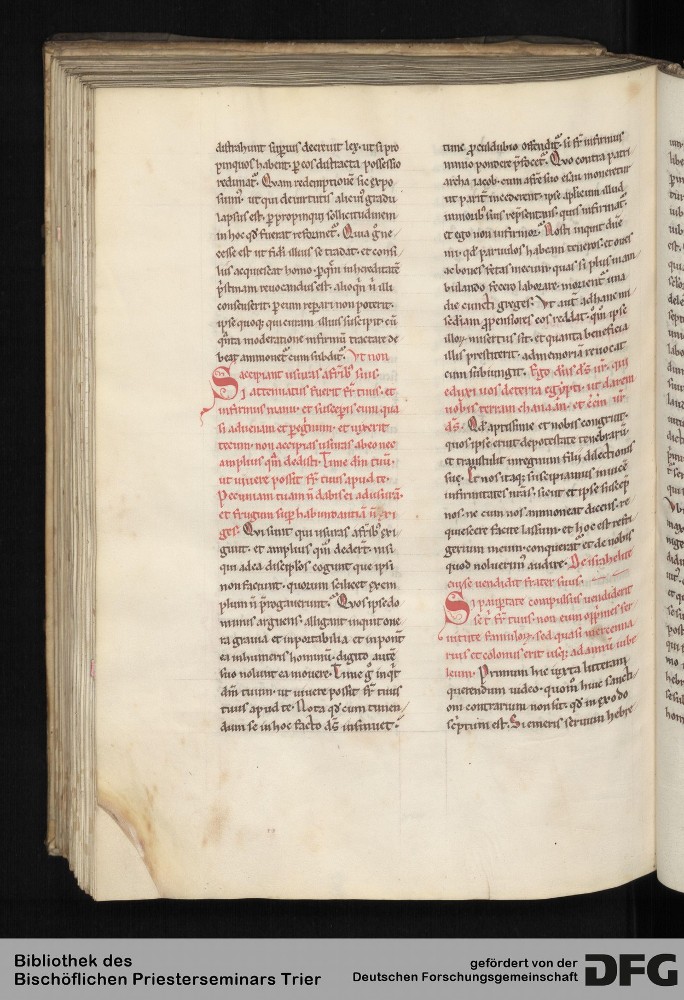 distrahunt superius decreuit lex. ut si pro
pinquos habent. per eos distracta possessio
redimatur. Quam redemptionem sic expo
suimus. ut qui de uirtutis alicuius gradu
lapsus est. per propinqui sollicitudinem
in hoc quod fuerat reformetur. Quia ergo ne
cesse est ut fidei illius se tradat. et consi
liis acquiescat homo. per quem in hereditatem
pristinam reuocandus est. alioquin si illi
non consenserit. per eum reparari non poterit.
ipse quoque qui curam illius suscipit cum
quanta moderatione infirmum tractare de
beat ammonetur cum subditur. Ut non
accipiant usuras a fratribus suis.
Si attenuatus fuerit frater tuus. et
infirmus manu. et susceperis eum qua
si aduenam et peregrinum. et uixerit
tecum. non accipias usuras ab eo nec
amplius quam dedisti. Time deum tuum.
ut uiuere possit frater tuus apud te.
Pecuniam tuam non dabis ei ad usuram.
et frugum superhabundantiam non exi
ges. Qui sunt qui usuras a fratribus exi
gunt. et amplius quam dederunt. nisi
qui ad ea discipulos cogunt que ipsi
non faciunt. quorum scilicet exem
plum non prerogauerunt. Quos ipse do
minus arguens. alligant inquit one
ra grauia et inportabilia. et inponunt
ea in humeris hominum. digito autem
suo nolunt ea mouere. Time ergo inquit
deum tuum. ut uiuere possit frater tuus
tuus apud te. Nota quod eum timen
dum se in hoc facto deus insinuet.
time. procul dubio offenditur. si frater infirmus
nimio pondere
Quo contra patri
archa iacob. cum a fratre suo esau moneretur
ut pariter incederent. ipse apostolicum illud
minoribus suis representans. quis infirmatur.
et ego non infirmor. Nosti inquit domine
mi. quod paruulos habeam teneros. et oues
ac boues fetas mecum. quas si plus in am
bulando fecero laborare. morientur una
die cuncti greges. Ut autem ad hanc mi
sediam propensiores eos reddat. quam ipse
illorum misertus sit. et quanta beneficia
illis prestiterit. ad memoriam reuocat
cum subiungit. Ego dominus deus uester. qui
eduxi uos de terra egypti. ut darem
uobis terram chanaan. et essem uester
deus. Quod aptissime et nobis congruit.
quos ipse eruit de potestate tenebrarum.
et transtulit in regnum filii dilectionis
sue. Et nos itaque suscipiamus inuicem
infirmitates nostras. sicut et ipse suscepit
nos. ne cum nos ammoneat dicens. re
quiescere facite lassum. et hoc est refri
gerium meum. conqueratur et de nobis
quod noluerunt audire. De israhelit
cui se uendidit frater suus.
Si paupertate compulsus uendiderit
se tibi frater tuus. non eum opprimes ser
uitute famulorum. sed quasi mercenna
rius et colonus erit. usque ad annum iube
leum. Primum hic iuxta litteram
querendum uideo. quomodo huic sancti
oni contrarium non sit. quod in exodo
scriptum est. Si emeris seruum hebre
Bibliothek des
Bischöflichen Priesterseminars Trier
gefördert von der
Deutschen Forschungsgemeinschaft
DFG